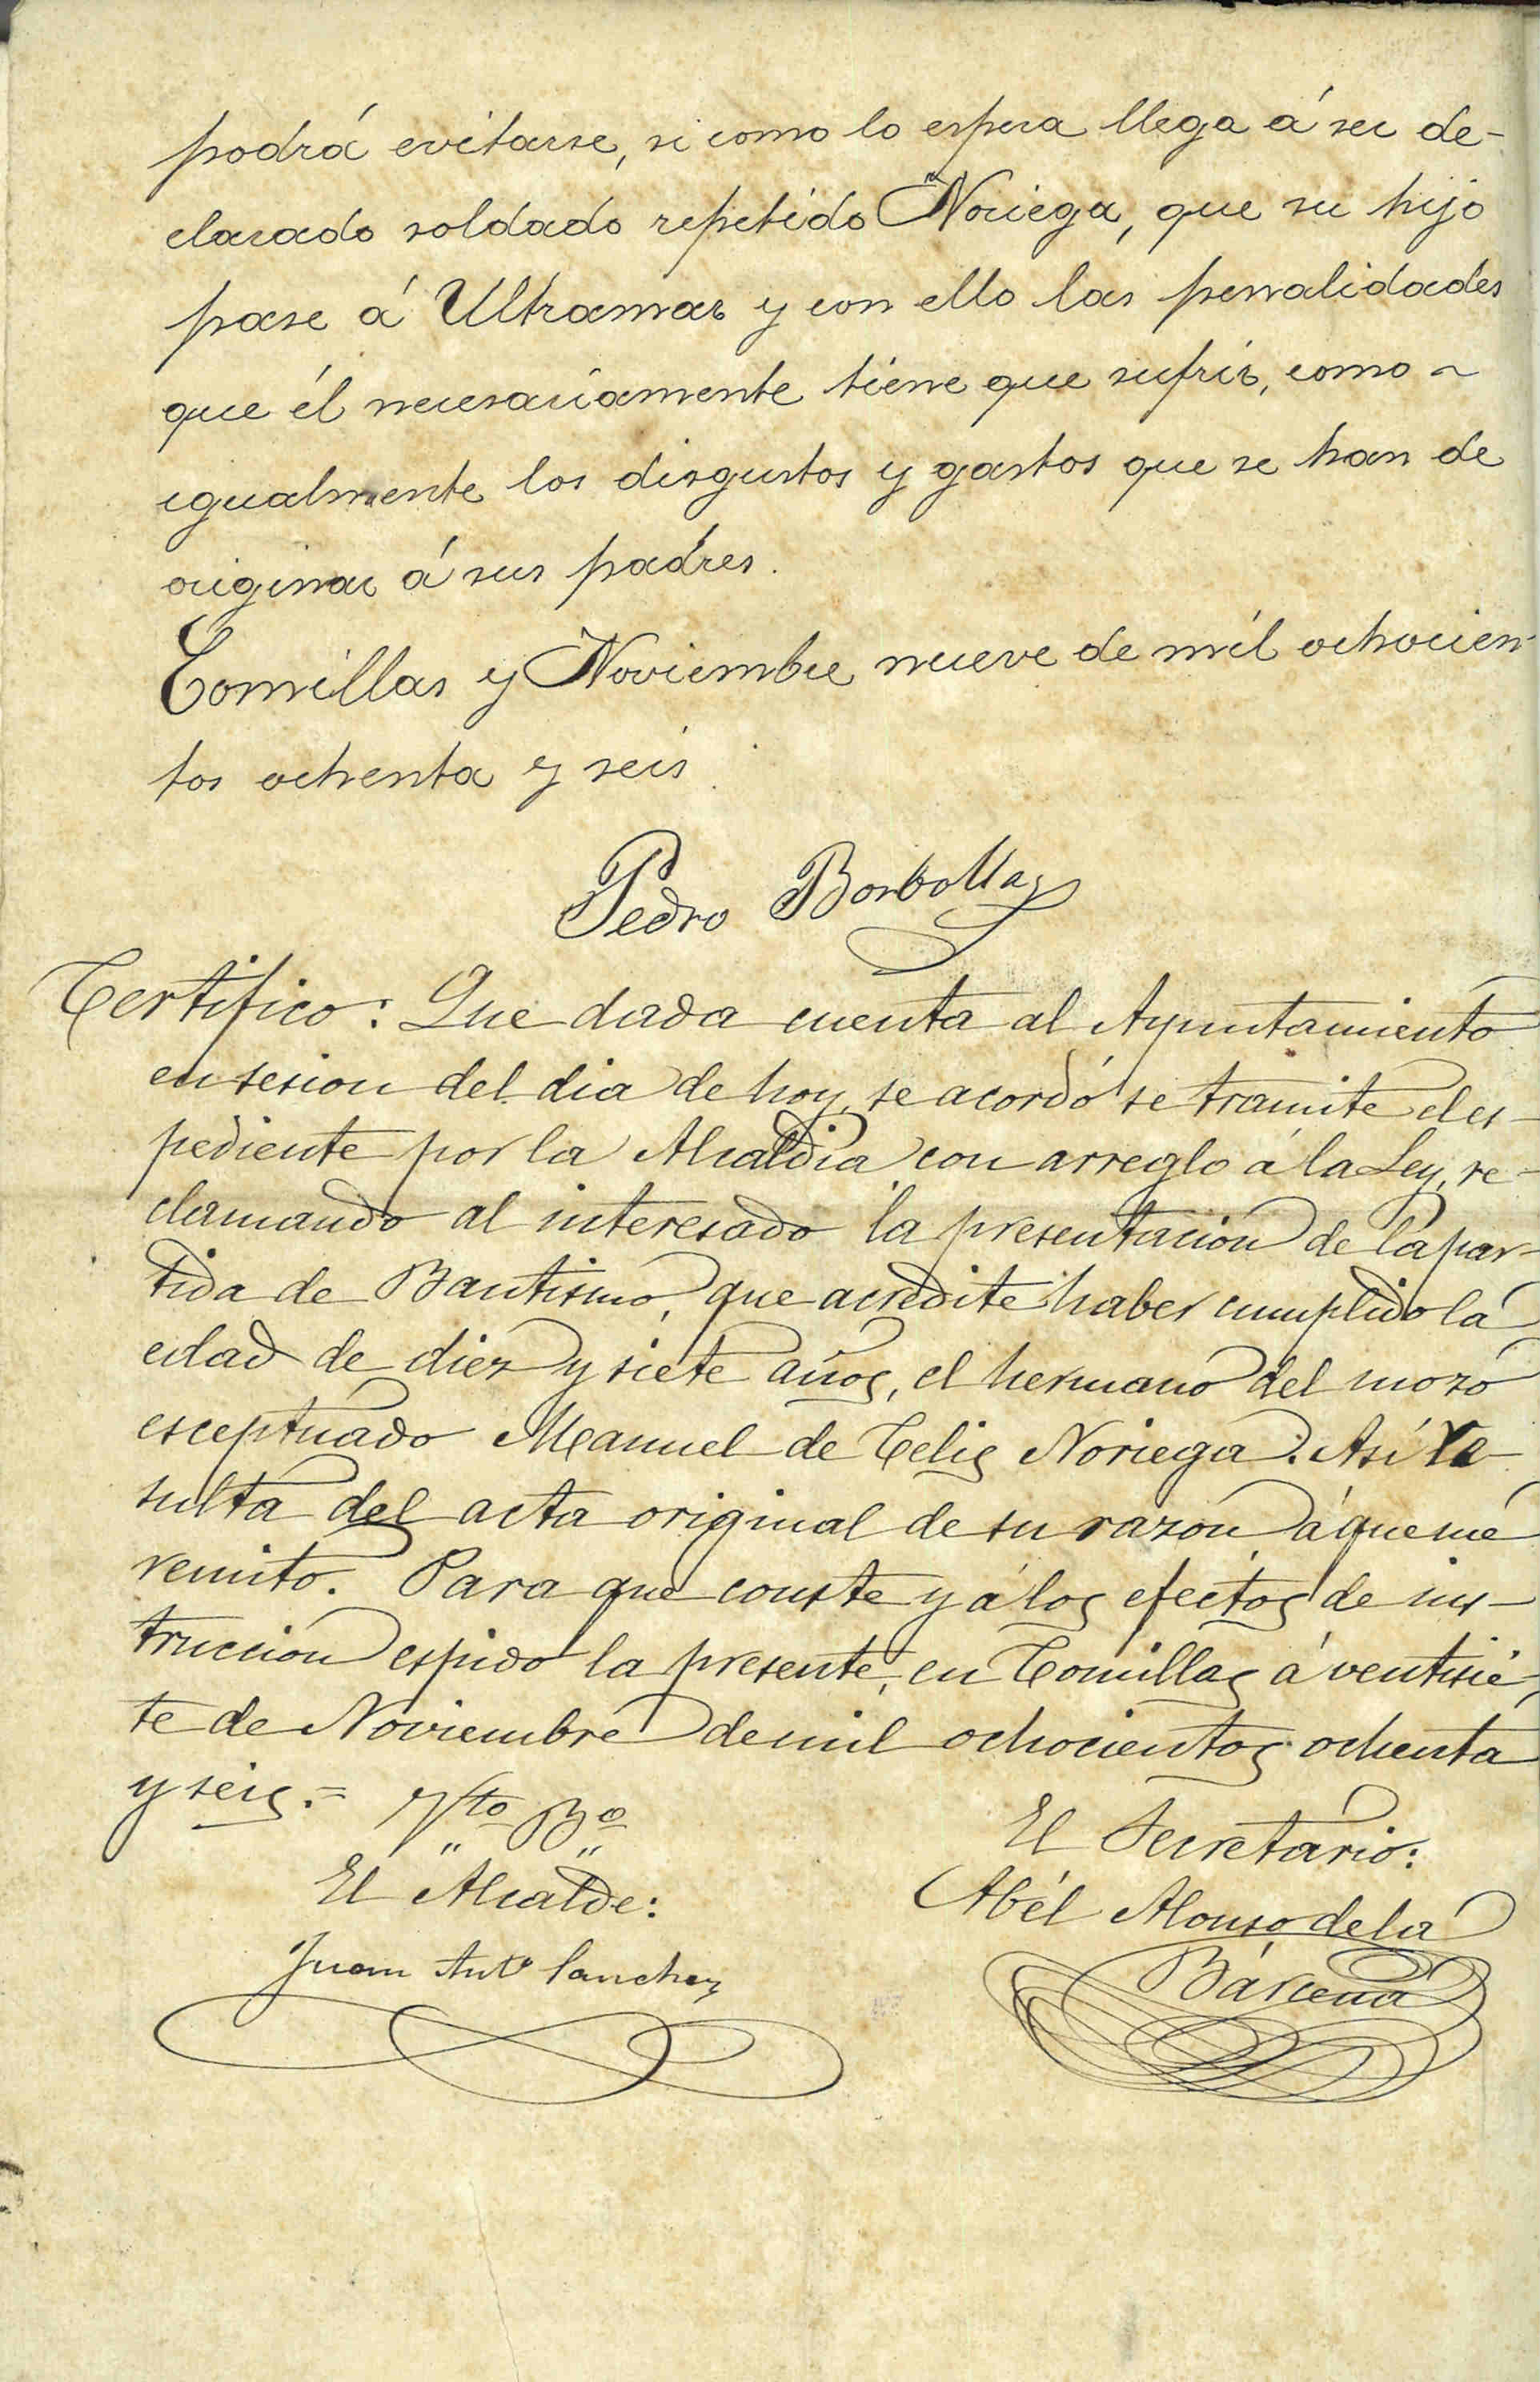 podrá evitarse, si como lo espera llega á ser de-
clarado soldado repetido Noriega, que su hijo
pase á Ultramar y con ello las penalidades
que él necesariamente tiene que sufrir, como ~
igualmente los disgustos y gastos que se han de
originar á sus padres.
Comillas y Noviembre nueve de mil ochocien-
tos ochenta y seis.
Pedro Borbolla
Certifico: Que dada cuenta al Ayuntamiento
en sesion del dia de hoy, se acordó se tramite el es-
pediente por la Alcaldia con arreglo á la Ley, re-
clamando al interesado la presentacion de la par-
tida de Bautismo, que acredite haber cumplido la
edad de diez y siete años, el hermano del mozo
esceptuado Manuel de Celis Noriega. Así re
sulta del acta original de su razon á que me
remito. Para que conste y á los efectos de ins-
truccion espido la presente, en Comillas á ventisie-
te de Noviembre de mil ochocientos ochenta
y seis.=
Vto Bo
El Secretario:
El Alcalde:
Abél Alonso de la
Juan Anto Sanchez
Bárcena